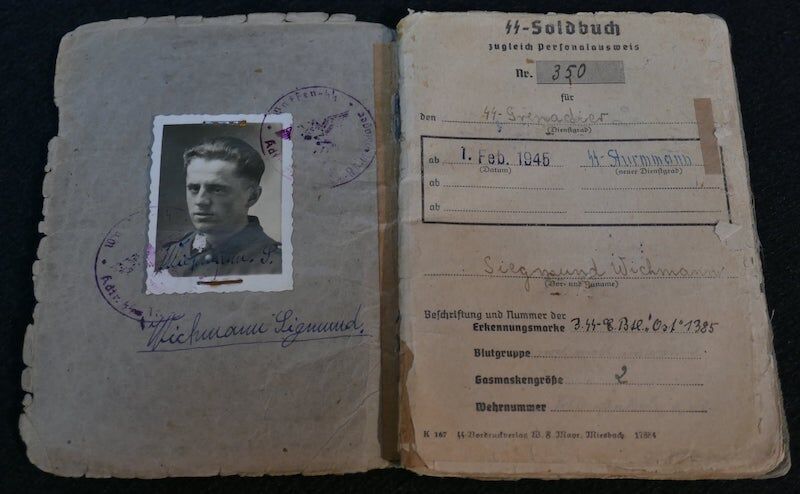 Waffen-SS
Wichmann. S.
Wichmann Sigmund.
SS-Soldbuch
zugleich Personalausweis
Nr. 350
für
den SS-Grenadier
(Dienstgrad)
ab 1. Feb. 1945 SS-Sturmmann
(Datum) (neuer Dienstgrad)
ab
ab
Siegmund Wichmann
(Vor- und Zuname)
Beschriftung und Nummer der
Erkennungsmarke 3. SS-E. Btl. "Ost" 1385
Blutgruppe
Gasmaskengröße 2
Wehrnummer
K 167 SS-Vordruckverlag W. F. Mayr, Miesbach